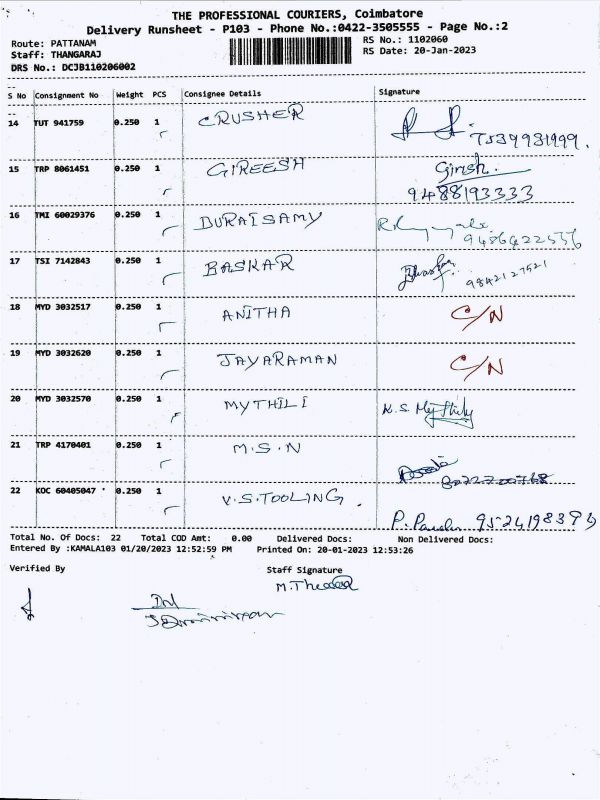 THE PROFESSIONAL COURIERS, Coimbatore
Delivery Runsheet - P103 - Phone No.:0422-3505555 - Page No.:2
Route: PATTANAM
RS No.: 1102060
Staff: THANGARAJ
RS Date: 20-Jan-2023
DRS No.: DCJB110206002
S No Consignment No Weight PCS Consignee Details Signature
14 TUT 941759 0.250 1 CRUSHER 7539931999.
15 TRP 8061451 0.250 1 GIREESH Girish.
9488193333
16 TMI 60029376 0.250 1 DURAISAMY
9486422536
17 TSI 7142843 0.250 1 BASKAR 9842127521
18 MYD 3032517 0.250 1 ANITHA C/N
19 MYD 3032620 0.250 1 JAYARAMAN C/N
20 MYD 3032570 0.250 1 MYTHILI K.S. Mythily
21 TRP 4170401 0.250 1 M.S.N
22 KOC 60405047 0.250 1 V.S.TOOLING
Total No. Of Docs: 22 Total COD Amt: 0.00 Delivered Docs: Non Delivered Docs:
Entered By :KAMALA103 01/20/2023 12:52:59 PM Printed On: 20-01-2023 12:53:26
Verified By Staff Signature